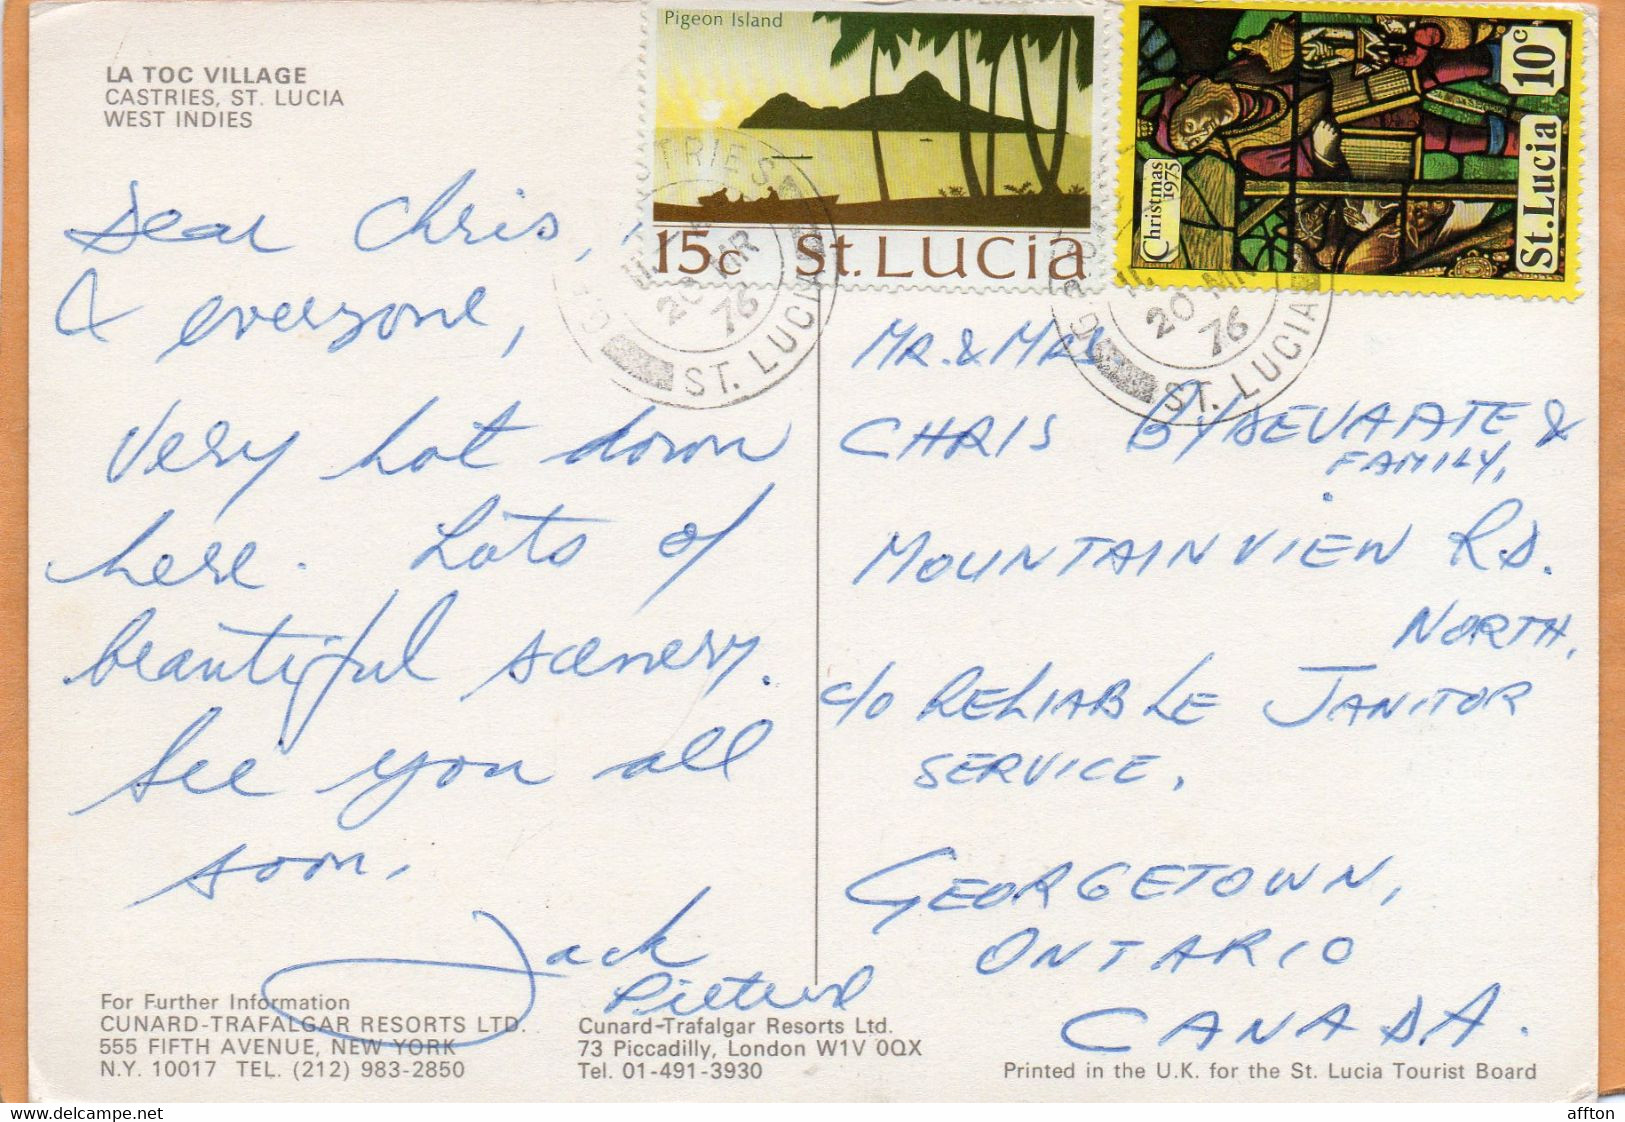 LA TOC VILLAGE
CASTRIES, ST. LUCIA
WEST INDIES
Pigeon Island
15c St. LUCIA
Christmas 1975
St. Lucia 10c
TRIES
20 MR
76
ST. LUCIA
G
20 MR
76
ST. LUCIA
Dear Chris,
& everyone,
Very hot down
here. Lots of
beautiful scenery.
See you all
soon.
Jack
MR. & MRS
CHRIS &
FAMILY,
MOUNTAINVIEW RD.
NORTH,
c/o RELIABLE JANITOR
SERVICE,
GEORGETOWN,
ONTARIO
CANADA.
For Further Information
CUNARD-TRAFALGAR RESORTS LTD.
555 FIFTH AVENUE, NEW YORK
N.Y. 10017 TEL. (212) 983-2850
Cunard-Trafalgar Resorts Ltd.
73 Piccadilly, London W1V 0QX
Tel. 01-491-3930
Printed in the U.K. for the St. Lucia Tourist Board
www.delcampe.net
affton